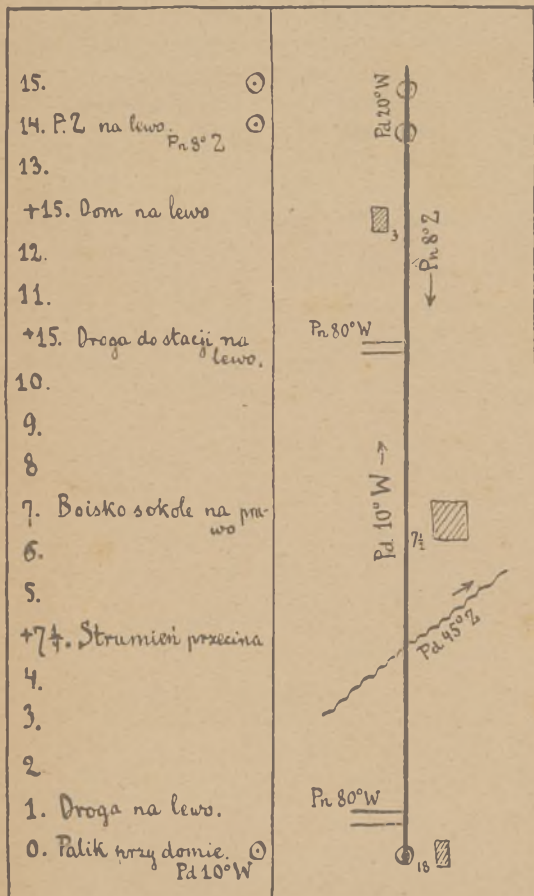 15.
14. P.Z na lewo.
Pn 8° Z
13.
+15. Dom na lewo
12.
11.
+15. Droga do stacji na
lewo.
10.
9.
8
7. Boisko sokole na pra-
wo
6.
5.
+7¼. Strumień przecina
4.
3.
2
1. Droga na lewo.
0. Palik przy domie.
Pd 10° W
Pd 20° W
3
Pn 8° Z
Pn 80° W
Pd 10° W
7½
Pd 45° Z
Pn 80° W
18